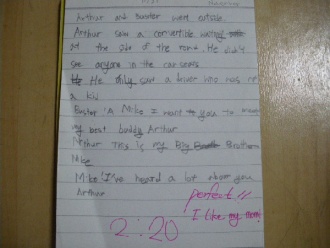 Arthur and buster were outside.
Arthur saw a convertible waiting
at the side of the road. He didn't
see anyone in the car seats
He only saw a driver who was not
a kid.
Buster: A Mike I want you to
my best buddy Arthur
Arthur This is my Big Brothers
Mike
Mike: I've heard a lot about you
Arthur
perfect!!
I like my
2:20